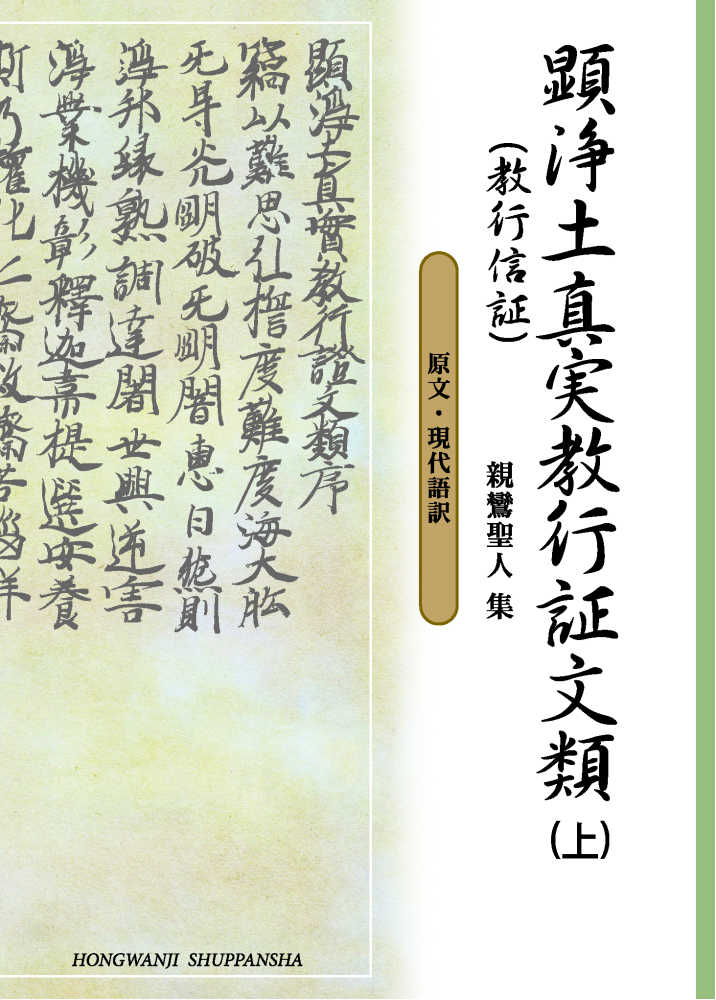 顕浄土真実教行証文類(上)
(教行信証)
親鸞聖人 集
原文・現代語訳
顯浄土真實教行證文類序
竊以難思弘誓度難度海大舩
无㝵光明破无明闇惠日然則
浄邦縁熟調達闍世興逆害
浄業機彰釋迦韋提選安養
HONGWANJI SHUPPANSHA